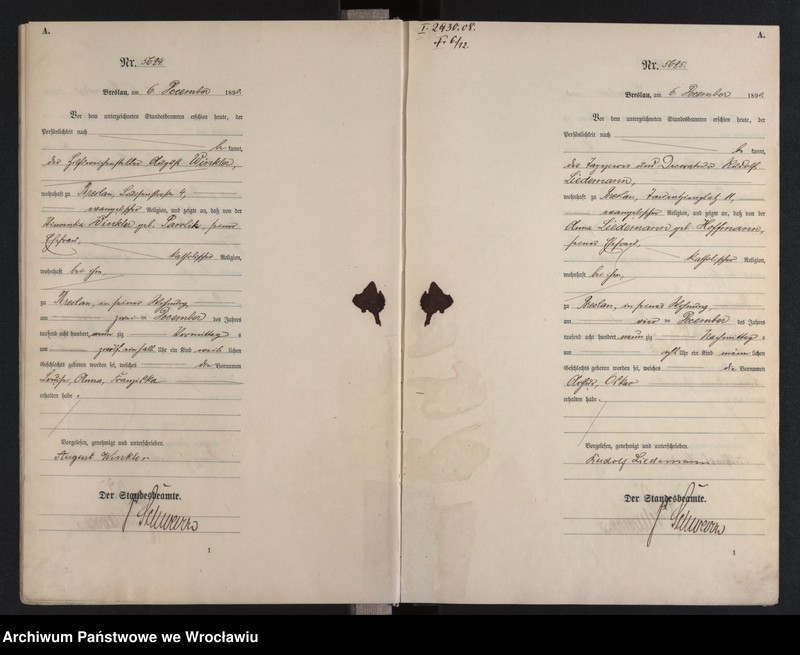 A.
Nr. 5694.
Breslau, am 6 December 1890.
Vor dem unterzeichneten Standesbeamten erschien heute, der
Persönlichkeit nach
be kannt,
August Winkler,
wohnhaft zu Breslau, 4,
evangelischer Religion, und zeigte an, daß von der
Winkler geb. seiner
Ehefrau,
katholischer Religion,
wohnhaft bei ihm
zu Breslau, in seiner Wohnung,
am zwei ten December des Jahres
tausend acht hundert neun zig Vormittag s
um zwölf einhalb Uhr ein Kind weib lichen
Geschlechts geboren worden sei, welches die Vornamen
Louise, Anna, Franziska
erhalten habe.
Vorgelesen, genehmigt und unterschrieben.
August Winkler
Der Standesbeamte.
1
I. 2430.08.
6/12.
A.
Nr. 5695.
Breslau, am 6 December 1890.
Vor dem unterzeichneten Standesbeamten erschien heute, der
Persönlichkeit nach
be kannt,
der Tapezierer und Decorateur Rudolf
Liedemann,
wohnhaft zu Breslau, Tauentzienplatz 11,
evangelischer Religion, und zeigte an, daß von der
Anna Liedemann geb. Hoffmann,
seiner Ehefrau,
katholischer Religion,
wohnhaft bei ihm,
zu Breslau, in seiner Wohnung,
am vier ten December des Jahres
tausend acht hundert neun zig Nachmittag s
um acht Uhr ein Kind männ lichen
Geschlechts geboren worden sei, welches die Vornamen
Oskar
erhalten habe.
Vorgelesen, genehmigt und unterschrieben.
Rudolf Liedemann
Der Standesbeamte.
1
Archiwum Państwowe we Wrocławiu